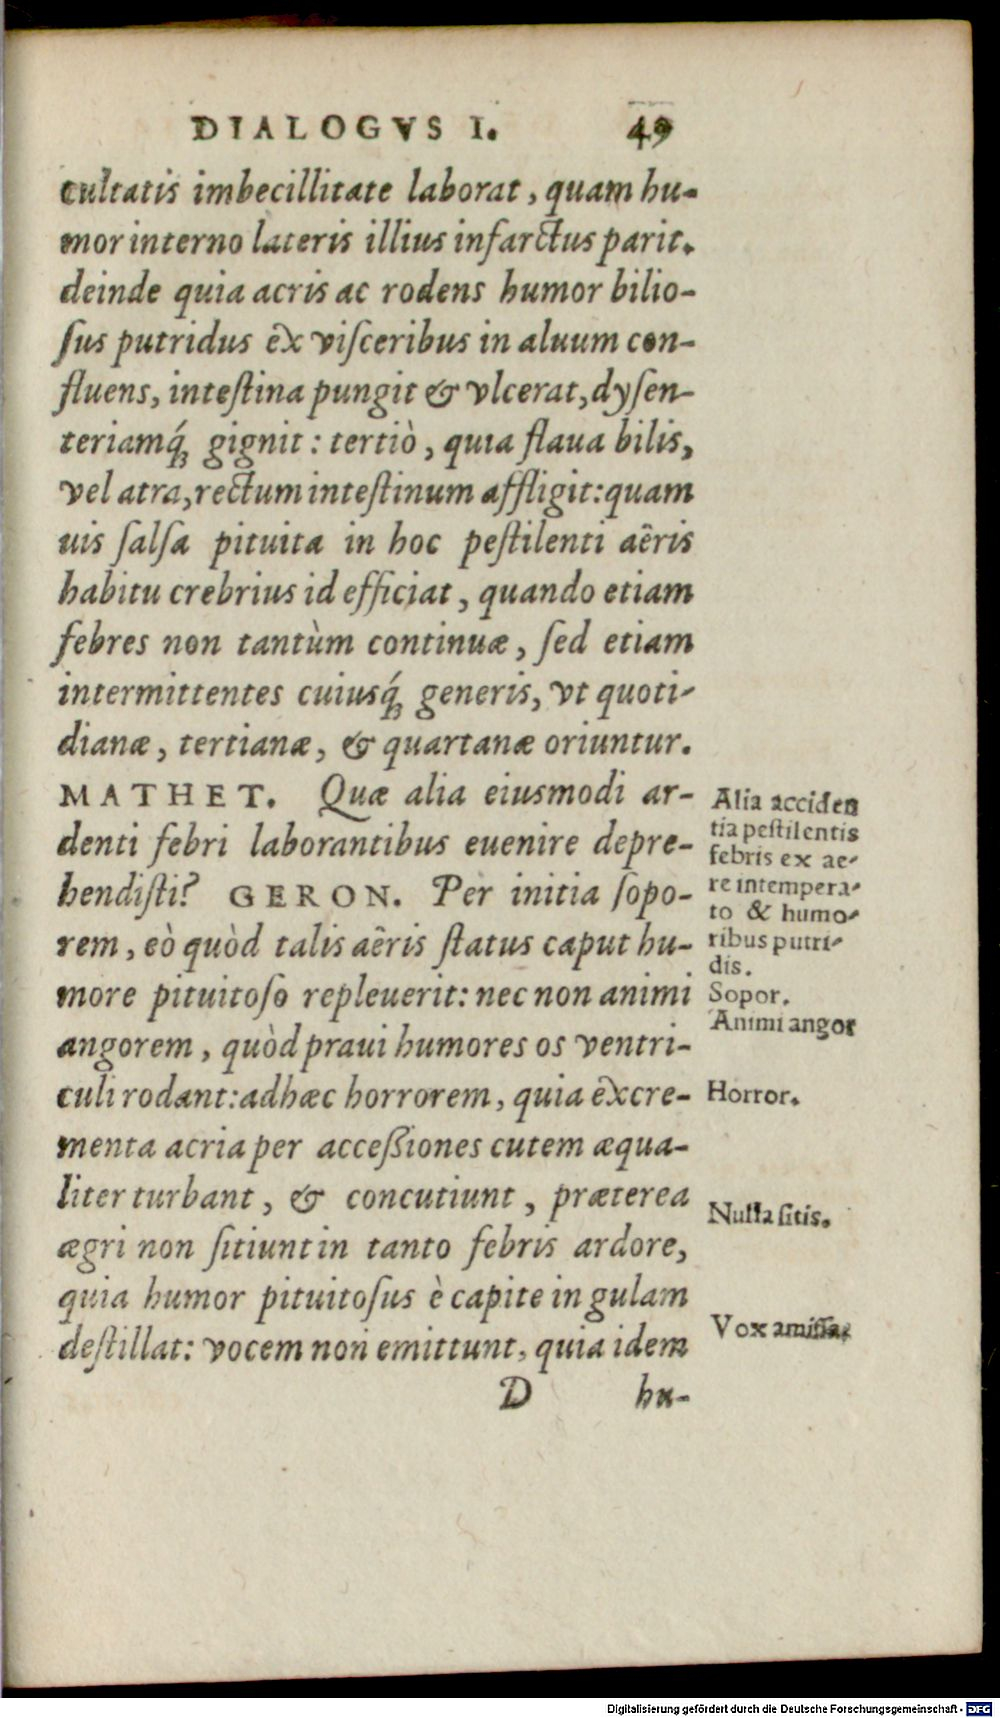 DIALOGVS I. 49
cultatis imbecillitate laborat, quam hu-
mor interno lateris illius infarctus parit.
deinde quia acris ac rodens humor bilio-
ſus putridus ex viſceribus in aluum con-
fluens, inteſtina pungit & vlcerat, dyſen-
teriamq́; gignit: tertiò, quia flaua bilis,
vel atra, rectum inteſtinum affligit: quam
uis ſalſa pituita in hoc peſtilenti aëris
habitu crebrius id efficiat, quando etiam
febres non tantùm continuæ, ſed etiam
intermittentes cuiusq́; generis, vt quoti-
dianæ, tertianæ, & quartanæ oriuntur.
MATHET. Quæ alia eiusmodi ar-
denti febri laborantibus euenire depre-
hendiſti? GERON. Per initia ſopo-
rem, eò quòd talis aëris ſtatus caput hu-
more pituitoſo repleuerit: nec non animi
angorem, quòd praui humores os ventri-
culi rodant: adhæc horrorem, quia excre-
menta acria per acceßiones cutem æqua-
liter turbant, & concutiunt, præterea
ægri non ſitiunt in tanto febris ardore,
quia humor pituitoſus è capite in gulam
deſtillat: vocem non emittunt, quia idem
D hu-
Alia acciden
tia peſtilentis
febris ex ae-
re intempera-
to & humo-
ribus putri-
dis.
Sopor.
Animi angor
Horror.
Nulla ſitis.
Vox amiſſa.
Digitalisierung gefördert durch die Deutsche Forschungsgemeinschaft - DFG